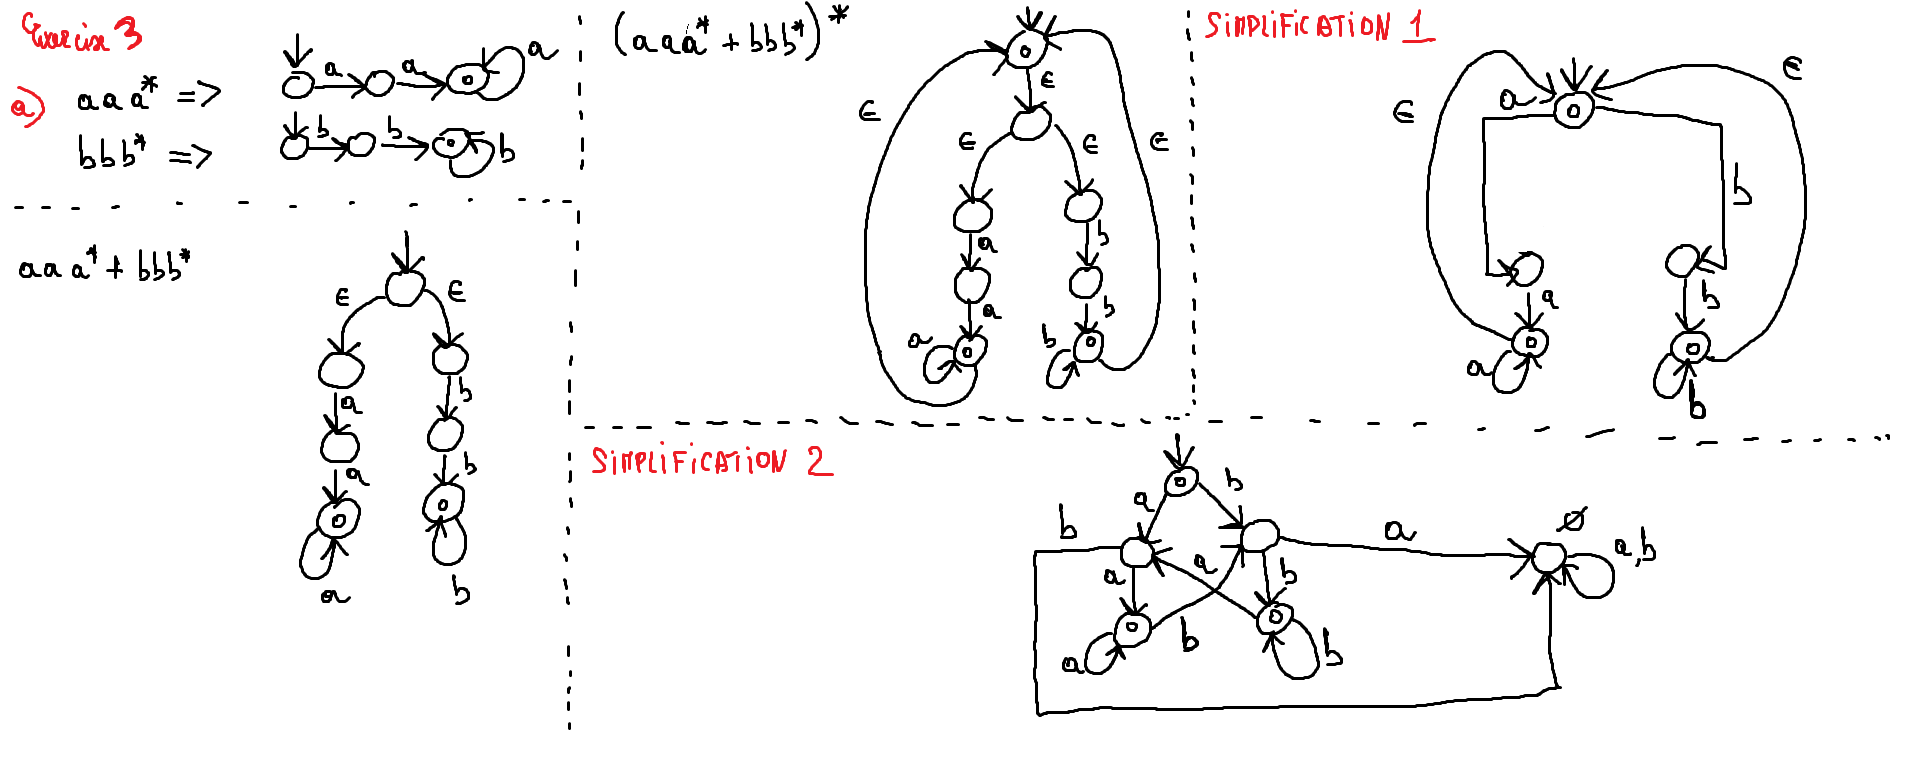 Exercise 3
a) aaa* =>
a a a
bbb* =>
b b b
aaa* + bbb*
ϵ ϵ
a b
a b
a b
(aaa* + bbb*)*
ϵ
ϵ ϵ
ϵ ϵ
a b
a b
a b
SIMPLIFICATION 1
ϵ a ϵ
b
a b
a b
SIMPLIFICATION 2
a b
b a ∅
a,b
a a b
a b b